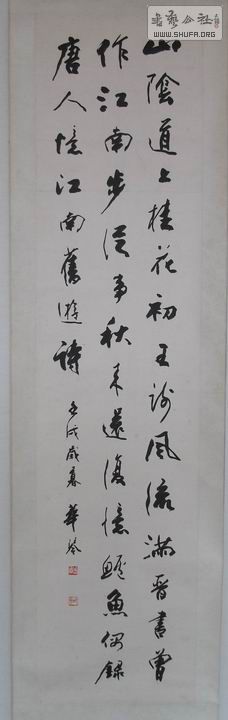 書藝公社
WWW.SHUFA.ORG
山陰道上桂花初王謝風流滿晉書曾
作江南步從事秋来還復憶鱸魚偶錄
唐人憶江南舊遊詩
壬戌歲暮 華